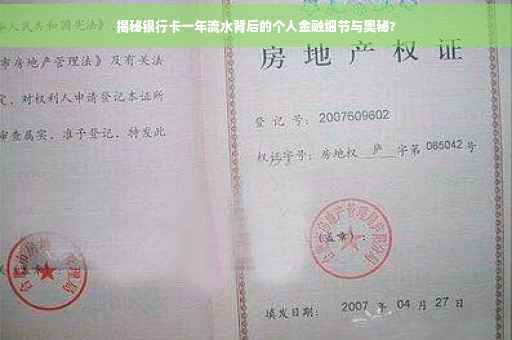 揭秘银行卡一年流水背后的个人金融细节与奥秘?
人民共和国宪法》
市房地产管理法》及有关法
定，对权利人申请登记本证所
审查属实，准予登记，特发此
房地产权证
登记号：2007609602
权证字号：房地权 庐 字第 065042 号
(盖章)：
填发日期： 2007 年 04 月 27 日